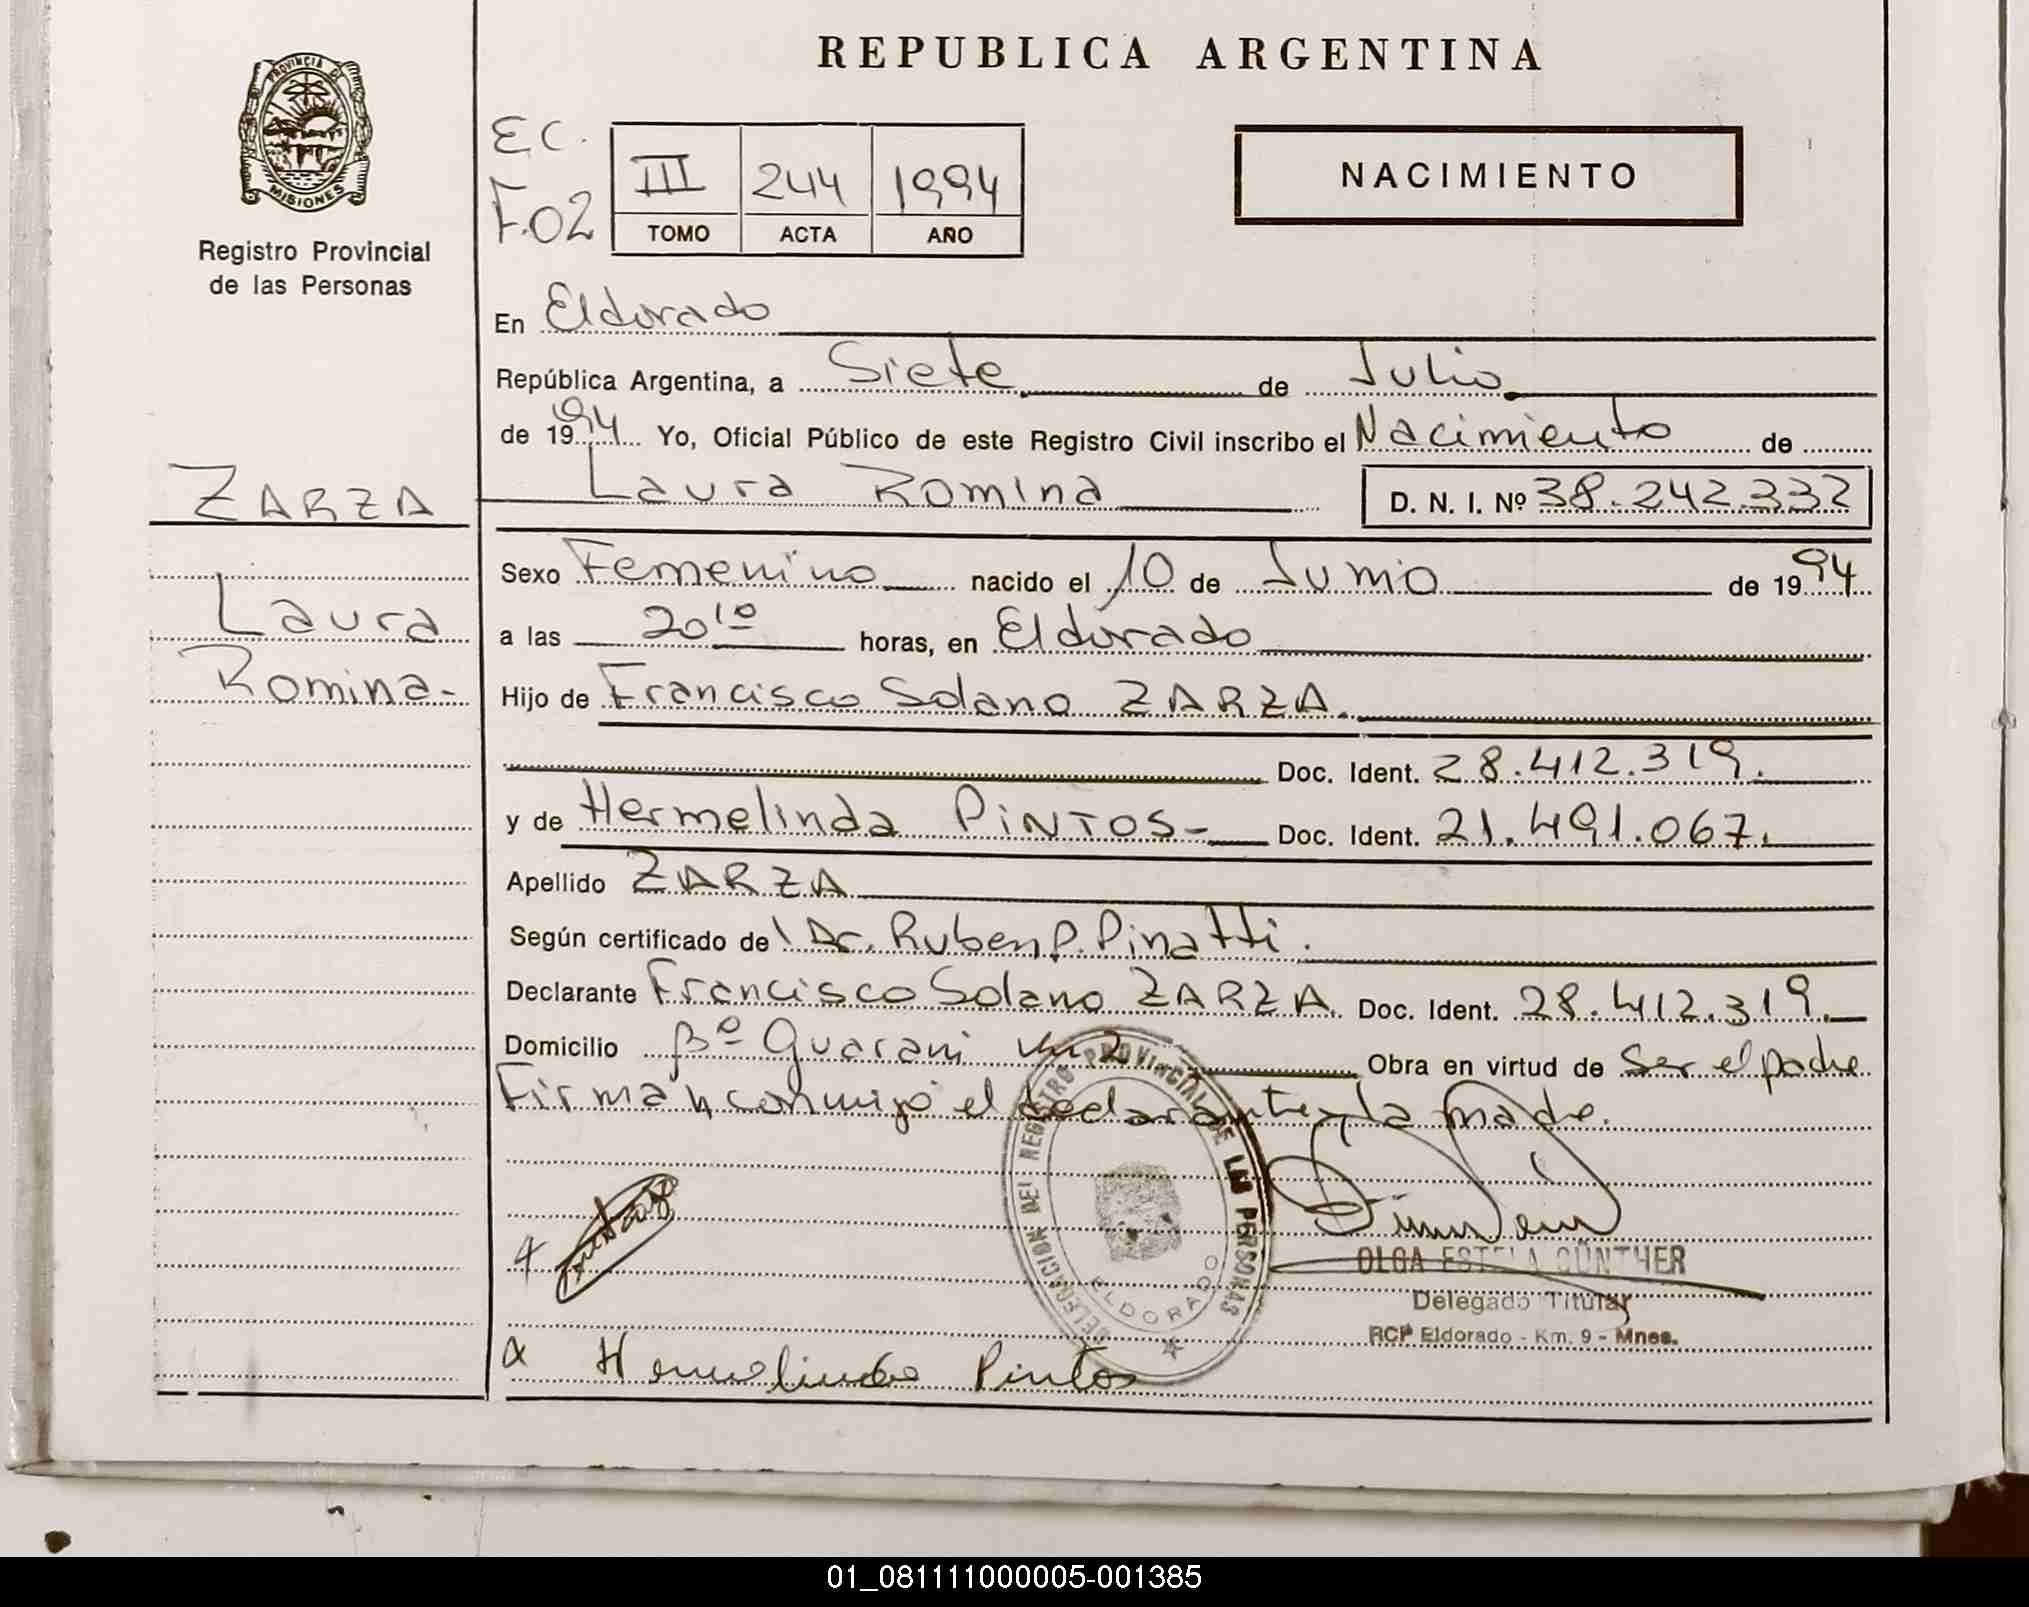 REPUBLICA ARGENTINA
PROVINCIA DE
MISIONES
Registro Provincial
de las Personas
EC.
F.02
III 244 1994
TOMO ACTA AÑO
NACIMIENTO
En Eldorado
República Argentina, a Siete de Julio
de 1994 Yo, Oficial Público de este Registro Civil inscribo el Nacimiento de
ZARZA
Laura
Romina-
Laura Romina D. N. I. Nº 38.242.332
Sexo Femenino nacido el 10 de Junio de 1994
a las 20 10 horas, en Eldorado
Hijo de Francisco Solano ZARZA.
Doc. Ident. 28.412.319.
y de Hermelinda PINTOS- Doc. Ident. 21.491.067.
Apellido ZARZA
Según certificado de Dr. Ruben P. Pinatti.
Declarante Francisco Solano ZARZA. Doc. Ident. 28.412.319.
Domicilio Bº Guarani km 2 Obra en virtud de Ser el padre
Firman conmigo el declarante y la madre.
DELEGACION DEL REGISTRO PROVINCIAL DE LAS PERSONAS
ELDORADO
OLGA ESTELA GÜNTHER
Delegado Titular
RCP Eldorado - Km. 9 - Mnes.
Hermelinda Pintos
01_081111000005-001385